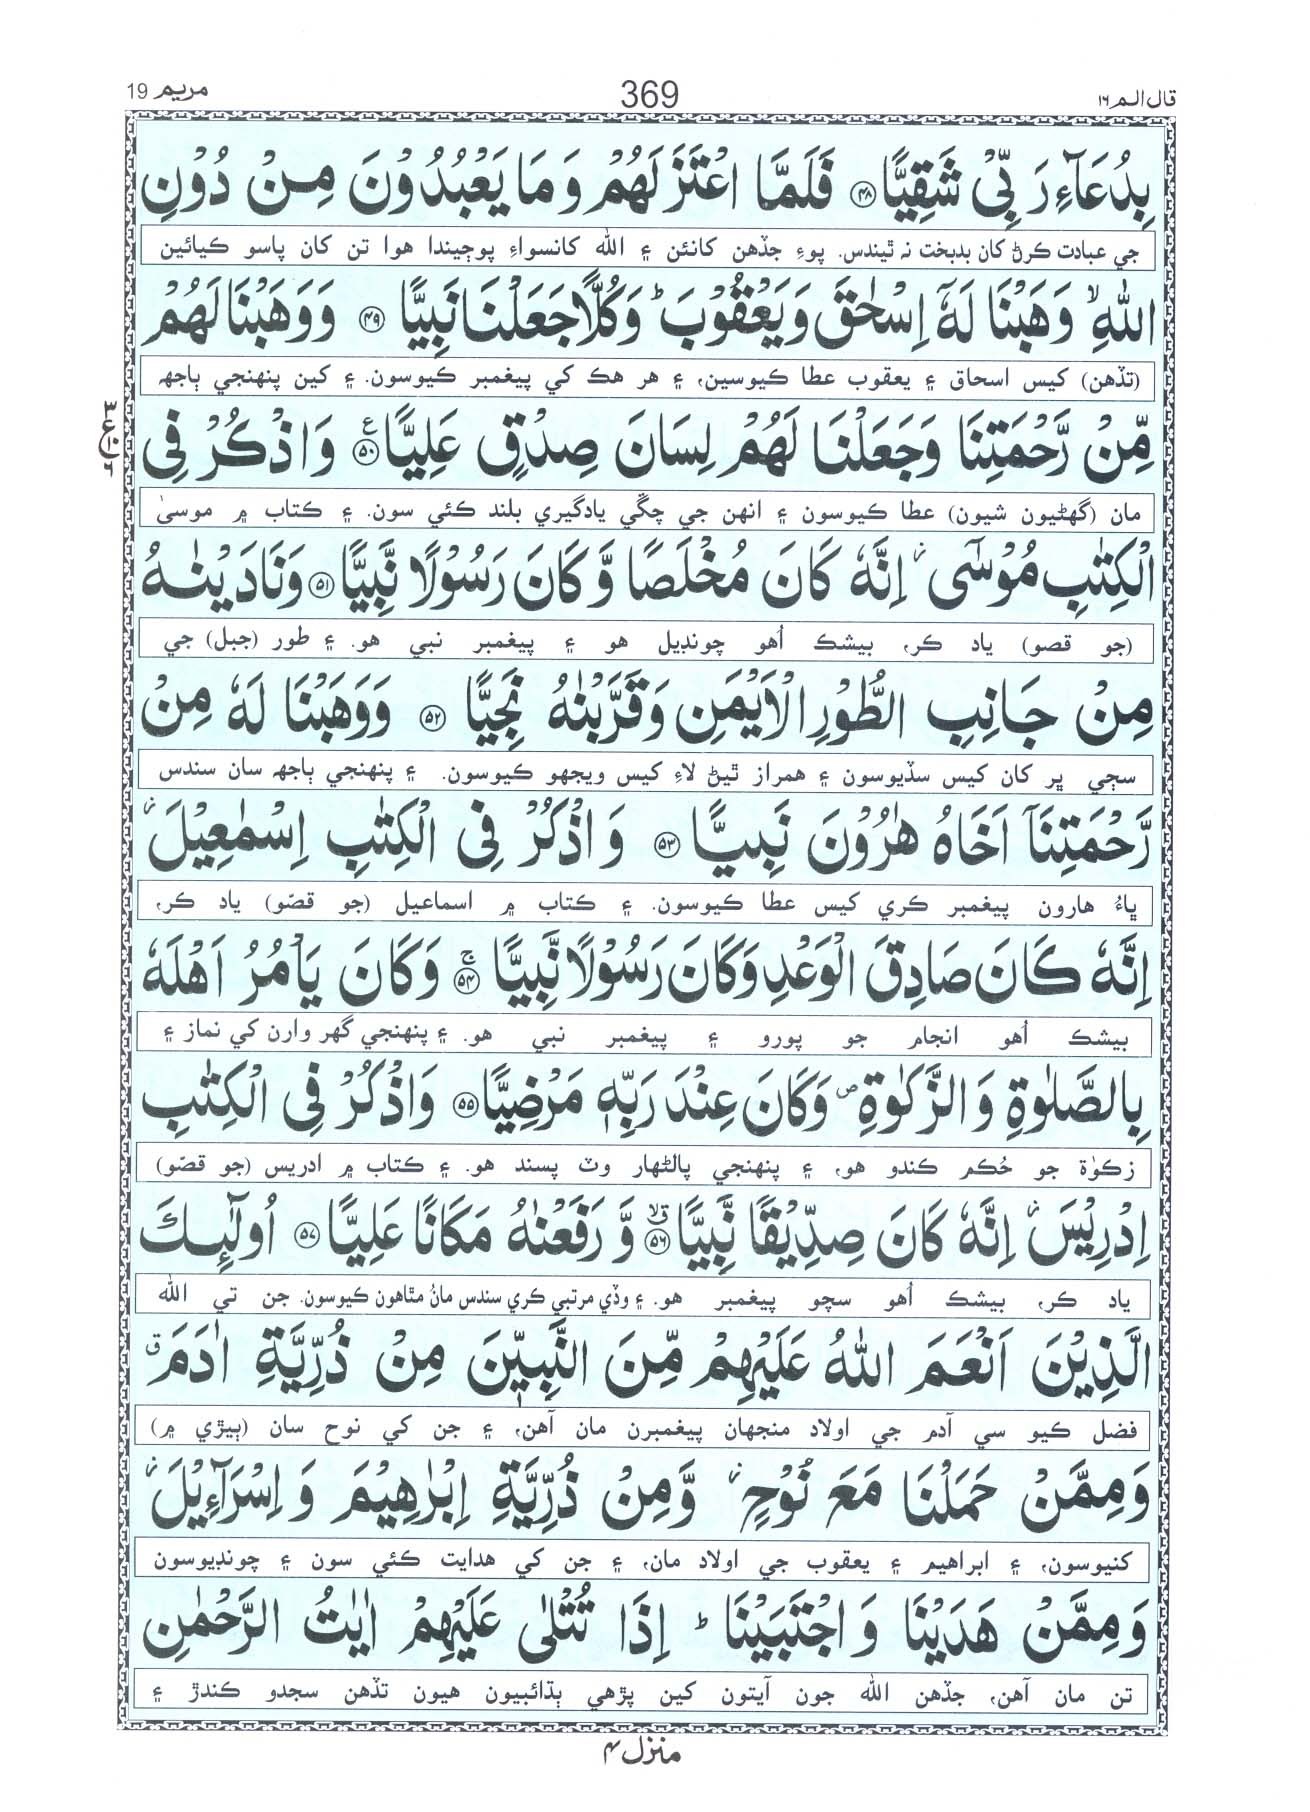 قال الم ۱۶ 369 مريم 19
بِدُعَآءِ رَبِّىْ شَقِيًّا ﴿۴۸﴾ فَلَمَّا اعْتَزَلَهُمْ وَمَا يَعْبُدُوْنَ مِنْ دُوْنِ
جي عبادت ڪرڻ کان بدبخت نہ ٿيندس. پوءِ جڏهن کانئن ۽ الله کانسواءِ پوڄيندا هوا تن کان پاسو ڪيائين
اللهِ ۙ وَهَبْنَا لَهٗٓ اِسْحٰقَ وَيَعْقُوْبَ ؕ وَكُلًّا جَعَلْنَا نَبِيًّا ﴿۴۹﴾ وَوَهَبْنَا لَهُمْ
(تڏهن) کيس اسحاق ۽ يعقوب عطا ڪيوسين، ۽ هر هڪ کي پيغمبر ڪيوسون. ۽ کين پنهنجي ٻاجهہ
مِّنْ رَّحْمَتِنَا وَجَعَلْنَا لَهُمْ لِسَانَ صِدْقٍ عَلِيًّا ﴿۵۰﴾ ع وَاذْكُرْ فِى
مان (گهڻيون شيون) عطا ڪيوسون ۽ انهن جي چڱي يادگيري بلند ڪئي سون. ۽ ڪتاب ۾ موسىٰ
الْكِتٰبِ مُوْسٰٓى ز اِنَّهٗ كَانَ مُخْلَصًا وَّكَانَ رَسُوْلًا نَّبِيًّا ﴿۵۱﴾ وَنَادَيْنٰهُ
(جو قصو) ياد ڪر، بيشڪ اُهو چونڊيل هو ۽ پيغمبر نبي هو. ۽ طور (جبل) جي
مِنْ جَانِبِ الطُّوْرِ الْاَيْمَنِ وَقَرَّبْنٰهُ نَجِيًّا ﴿۵۲﴾ وَوَهَبْنَا لَهٗ مِنْ
سڄي پر کان کيس سڏيوسون ۽ همراز ٿيڻ لاءِ کيس ويجهو ڪيوسون. ۽ پنهنجي ٻاجهہ سان سندس
رَّحْمَتِنَآ اَخَاهُ هٰرُوْنَ نَبِيًّا ﴿۵۳﴾ وَاذْكُرْ فِى الْكِتٰبِ اِسْمٰعِيْلَ ز
ڀاءُ هارون پيغمبر ڪري کيس عطا ڪيوسون. ۽ ڪتاب ۾ اسماعيل (جو قصّو) ياد ڪر،
اِنَّهٗ كَانَ صَادِقَ الْوَعْدِ وَكَانَ رَسُوْلًا نَّبِيًّا ﴿۵۴﴾ ۚ وَكَانَ يَاْمُرُ اَهْلَهٗ
بيشڪ اُهو انجام جو پورو ۽ پيغمبر نبي هو. ۽ پنهنجي گهر وارن کي نماز ۽
بِالصَّلٰوةِ وَالزَّكٰوةِ ص وَكَانَ عِنْدَ رَبِّهٖ مَرْضِيًّا ﴿۵۵﴾ وَاذْكُرْ فِى الْكِتٰبِ
زڪوٰة جو حُڪم ڪندو هو، ۽ پنهنجي پالڻهار وٽ پسند هو. ۽ ڪتاب ۾ ادريس (جو قصّو)
اِدْرِيْسَ ز اِنَّهٗ كَانَ صِدِّيْقًا نَّبِيًّا ﴿۵۶﴾ قلا وَّرَفَعْنٰهُ مَكَانًا عَلِيًّا ﴿۵۷﴾ اُولٰٓئِكَ
ياد ڪر، بيشڪ اُهو سچو پيغمبر هو. ۽ وڏي مرتبي ڪري سندس مانُ مٿاهون ڪيوسون. جن تي الله
الَّذِيْنَ اَنْعَمَ اللهُ عَلَيْهِمْ مِّنَ النَّبِيّٖنَ مِنْ ذُرِّيَّةِ اٰدَمَ ق
فضل ڪيو سي آدم جي اولاد منجهان پيغمبرن مان آهن، ۽ جن کي نوح سان (ٻيڙي ۾)
وَمِمَّنْ حَمَلْنَا مَعَ نُوْحٍ ز وَّمِنْ ذُرِّيَّةِ اِبْرٰهِيْمَ وَاِسْرَآءِيْلَ ز
کنيوسون، ۽ ابراهيم ۽ يعقوب جي اولاد مان، ۽ جن کي هدايت ڪئي سون ۽ چونڊيوسون
وَمِمَّنْ هَدَيْنَا وَاجْتَبَيْنَا ؕ اِذَا تُتْلٰى عَلَيْهِمْ اٰيٰتُ الرَّحْمٰنِ
تن مان آهن، جڏهن الله جون آيتون کين پڙهي ٻڌائبيون هيون تڏهن سجدو ڪندڙ ۽
منزل ۴